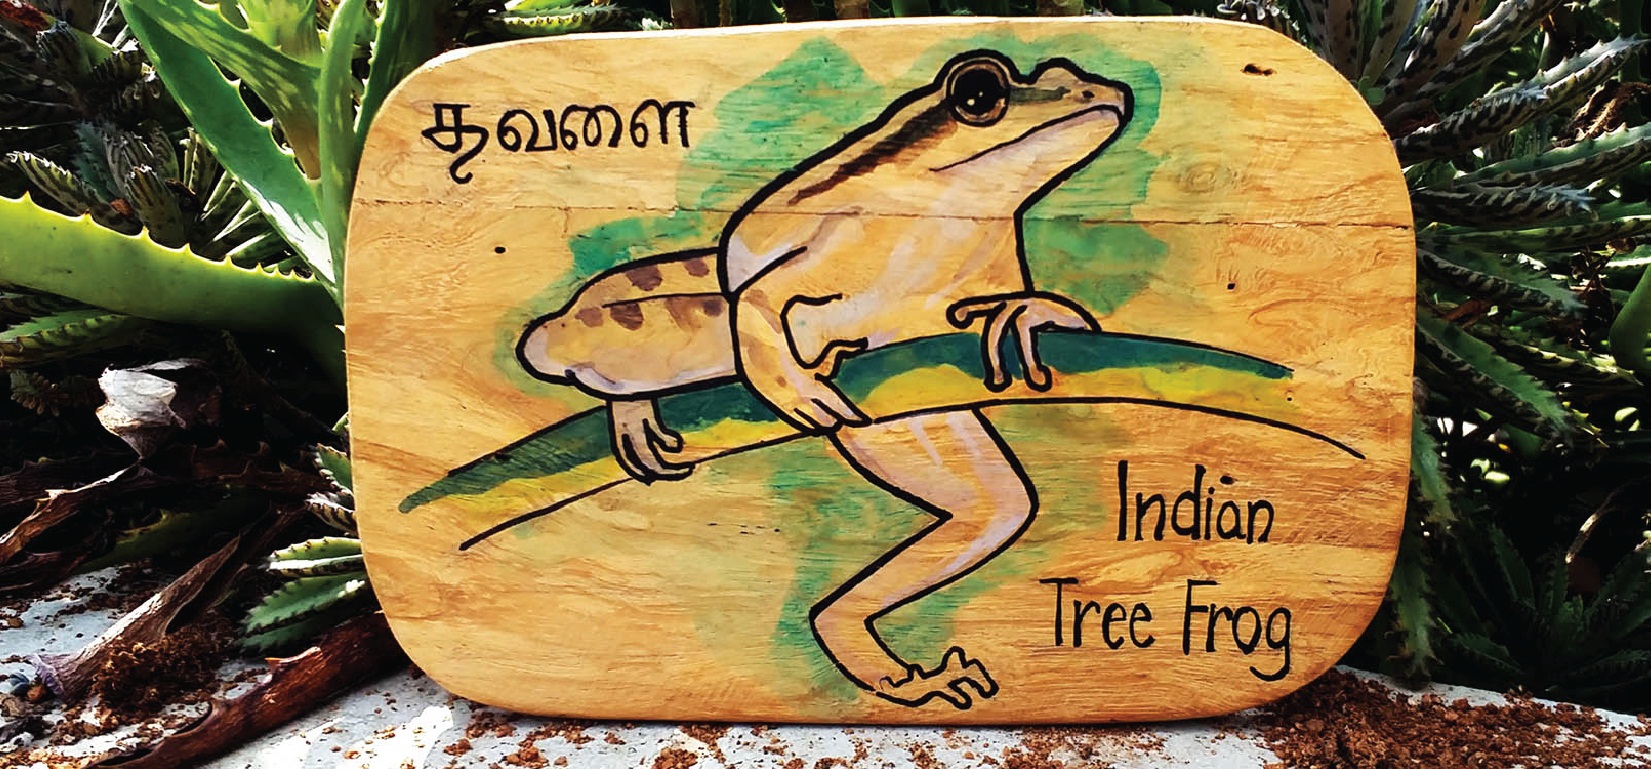 தவளை
Indian
Tree Frog